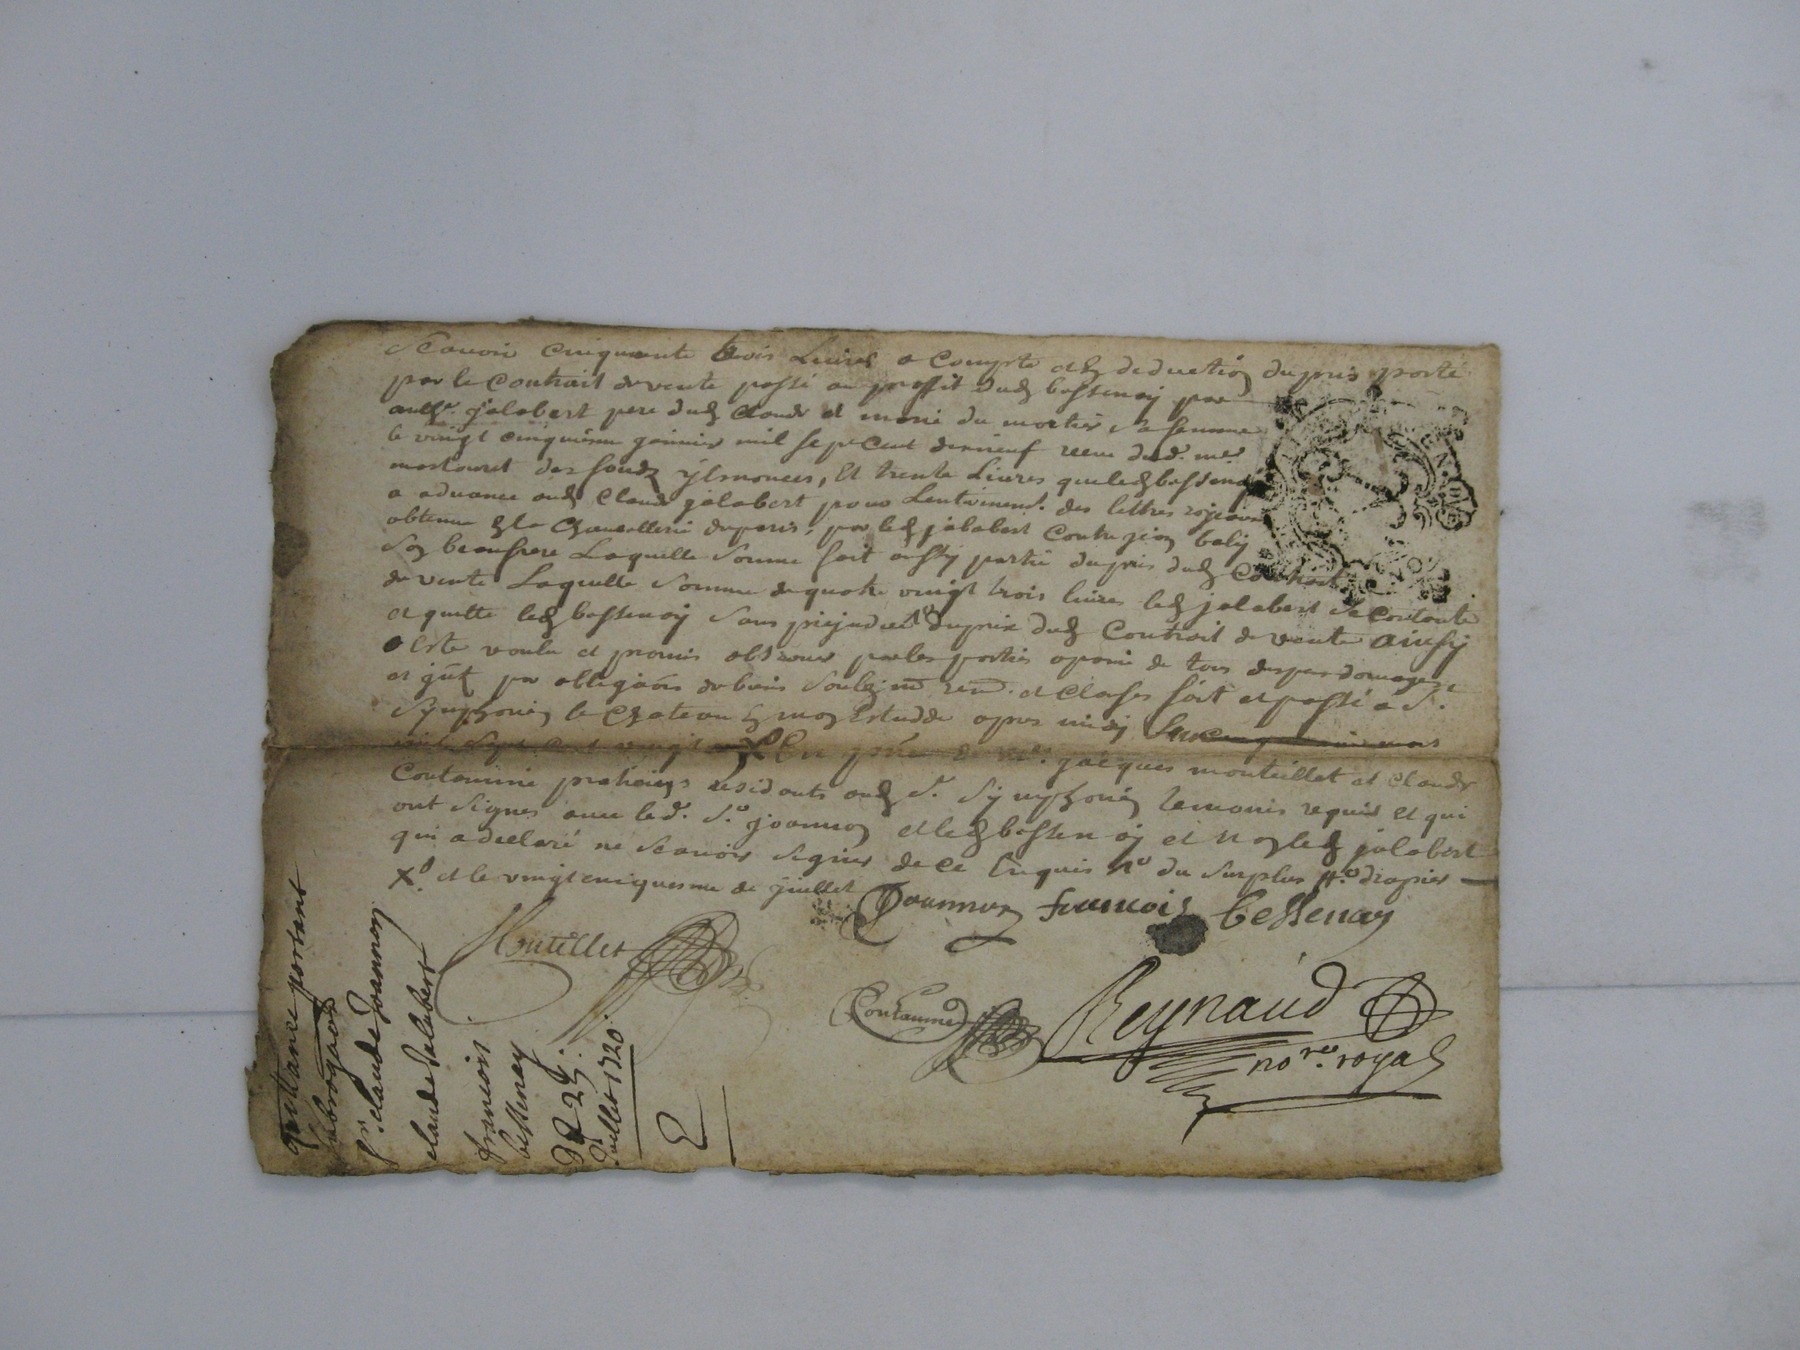 Scauoir cinquante trois Liures a Compte et deduction du pris porté
par le Contrait de vente passé au proffit dud bessenay par
jalabert pere dud Claude et marié du mortier sa femme
le vingt cinquiesme jeanvier mil sept Cent dixneuf receu dud. me.
des fondz y Enonces, Et trente Liures queled bessenay
a aduancé aud Claude jalabert pour Lentrinemt. des lettres royeaux
obtenue En la Chancellerie de paris, par led jalabert Contre
Son beaufrere Laquelle Somme fait aussy partie du pris dud Contrait
de vente Laquelle Somme de quatre vingt trois liures led jalabert Se Contente
et quitte led bessenay Sans prejudice du prix dud Contrait de vente ainsy
a Este voulu et promis obseruer par les parties a peine de tous
par de biens et clauses fait et passé a St.
Symphorien le Chateau En mon Estudde apres midy
mil Sept cent vingt En de jacques monteillet et claude
Contamine praticiens residants aud St. Symphorien temoins requis Et qui
ont Signes auec led. Sr. joannon et led bessenay et non led jalabert
qui a declaré ne Scauoir Signer de ce Enquis du Surplus
Xo. et le vingtcinquiesme de juillet
Joannon francois bessenay
Montellet
Contamine
Reynaud
nore. royal
quittance portant
subrogaon
pr. claude Joannon
claude Jalabert
francois
bessenay
25e.
Juillet 1720.